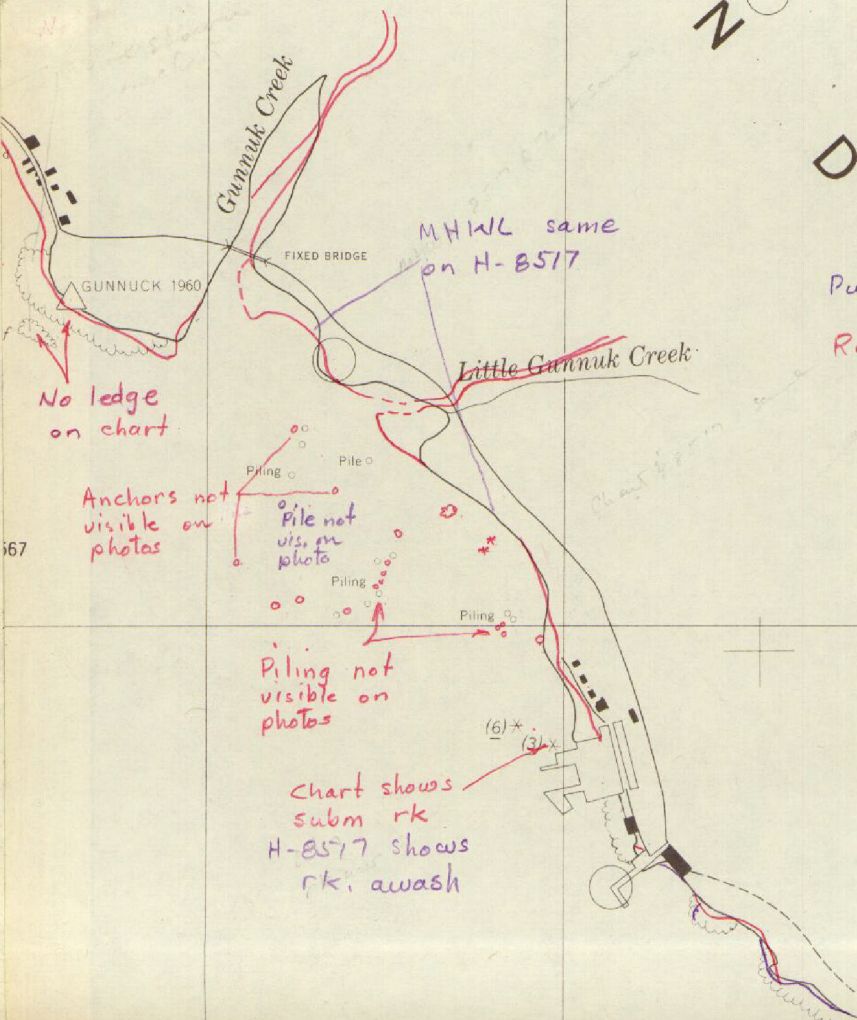 N
D
Gunnuk Creek
MHWL same
on H-8517
FIXED BRIDGE
GUNNUCK 1960
Pu
R
f
Little Gunnuk Creek
No ledge
on chart
Pile
Piling
Anchors not
visible on
photos
Pile not
vis. on
photo
567
Piling
Piling
Piling not
visible on
photos
(6)*
(3)*
Chart shows
subm rk
H-8517 shows
rk. awash